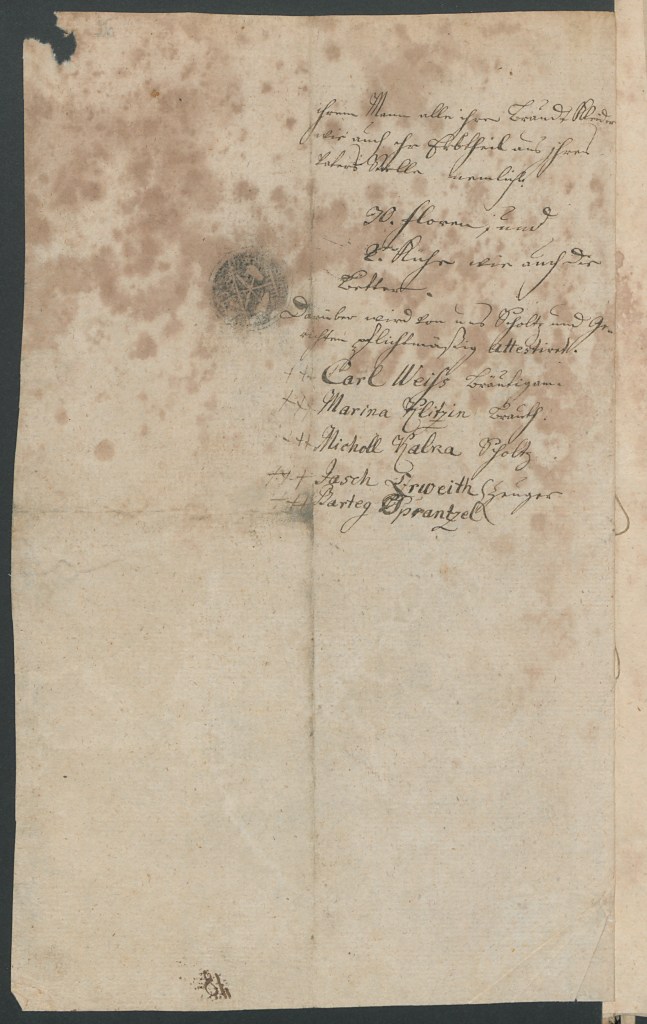 ihrem Mann alle ihre Brandt Kleider
wie auch ihr Erbtheil aus ihres
Vaters Stelle nemlich.
30. floren, und
2. Kuhe wie auch die
Betten.
Darüber wird von uns Scholtz und Ge-
richten pflichtmäßig attestiret.
+++ Carl Weiss Bräutigam.
+++ Marina Klitzin Brauth.
+++ Micholl Kalka Scholtz
+++ Jasch Erweith Zeuger
+++ Barteg Sprantzel